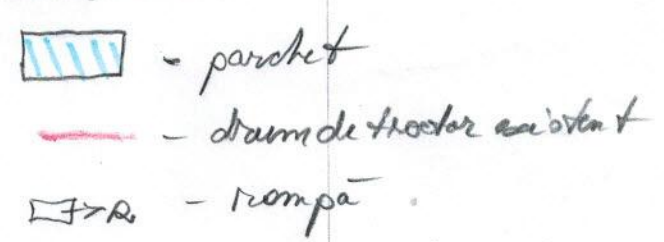 - parchet
- drum de tractor existent
R. - rampă